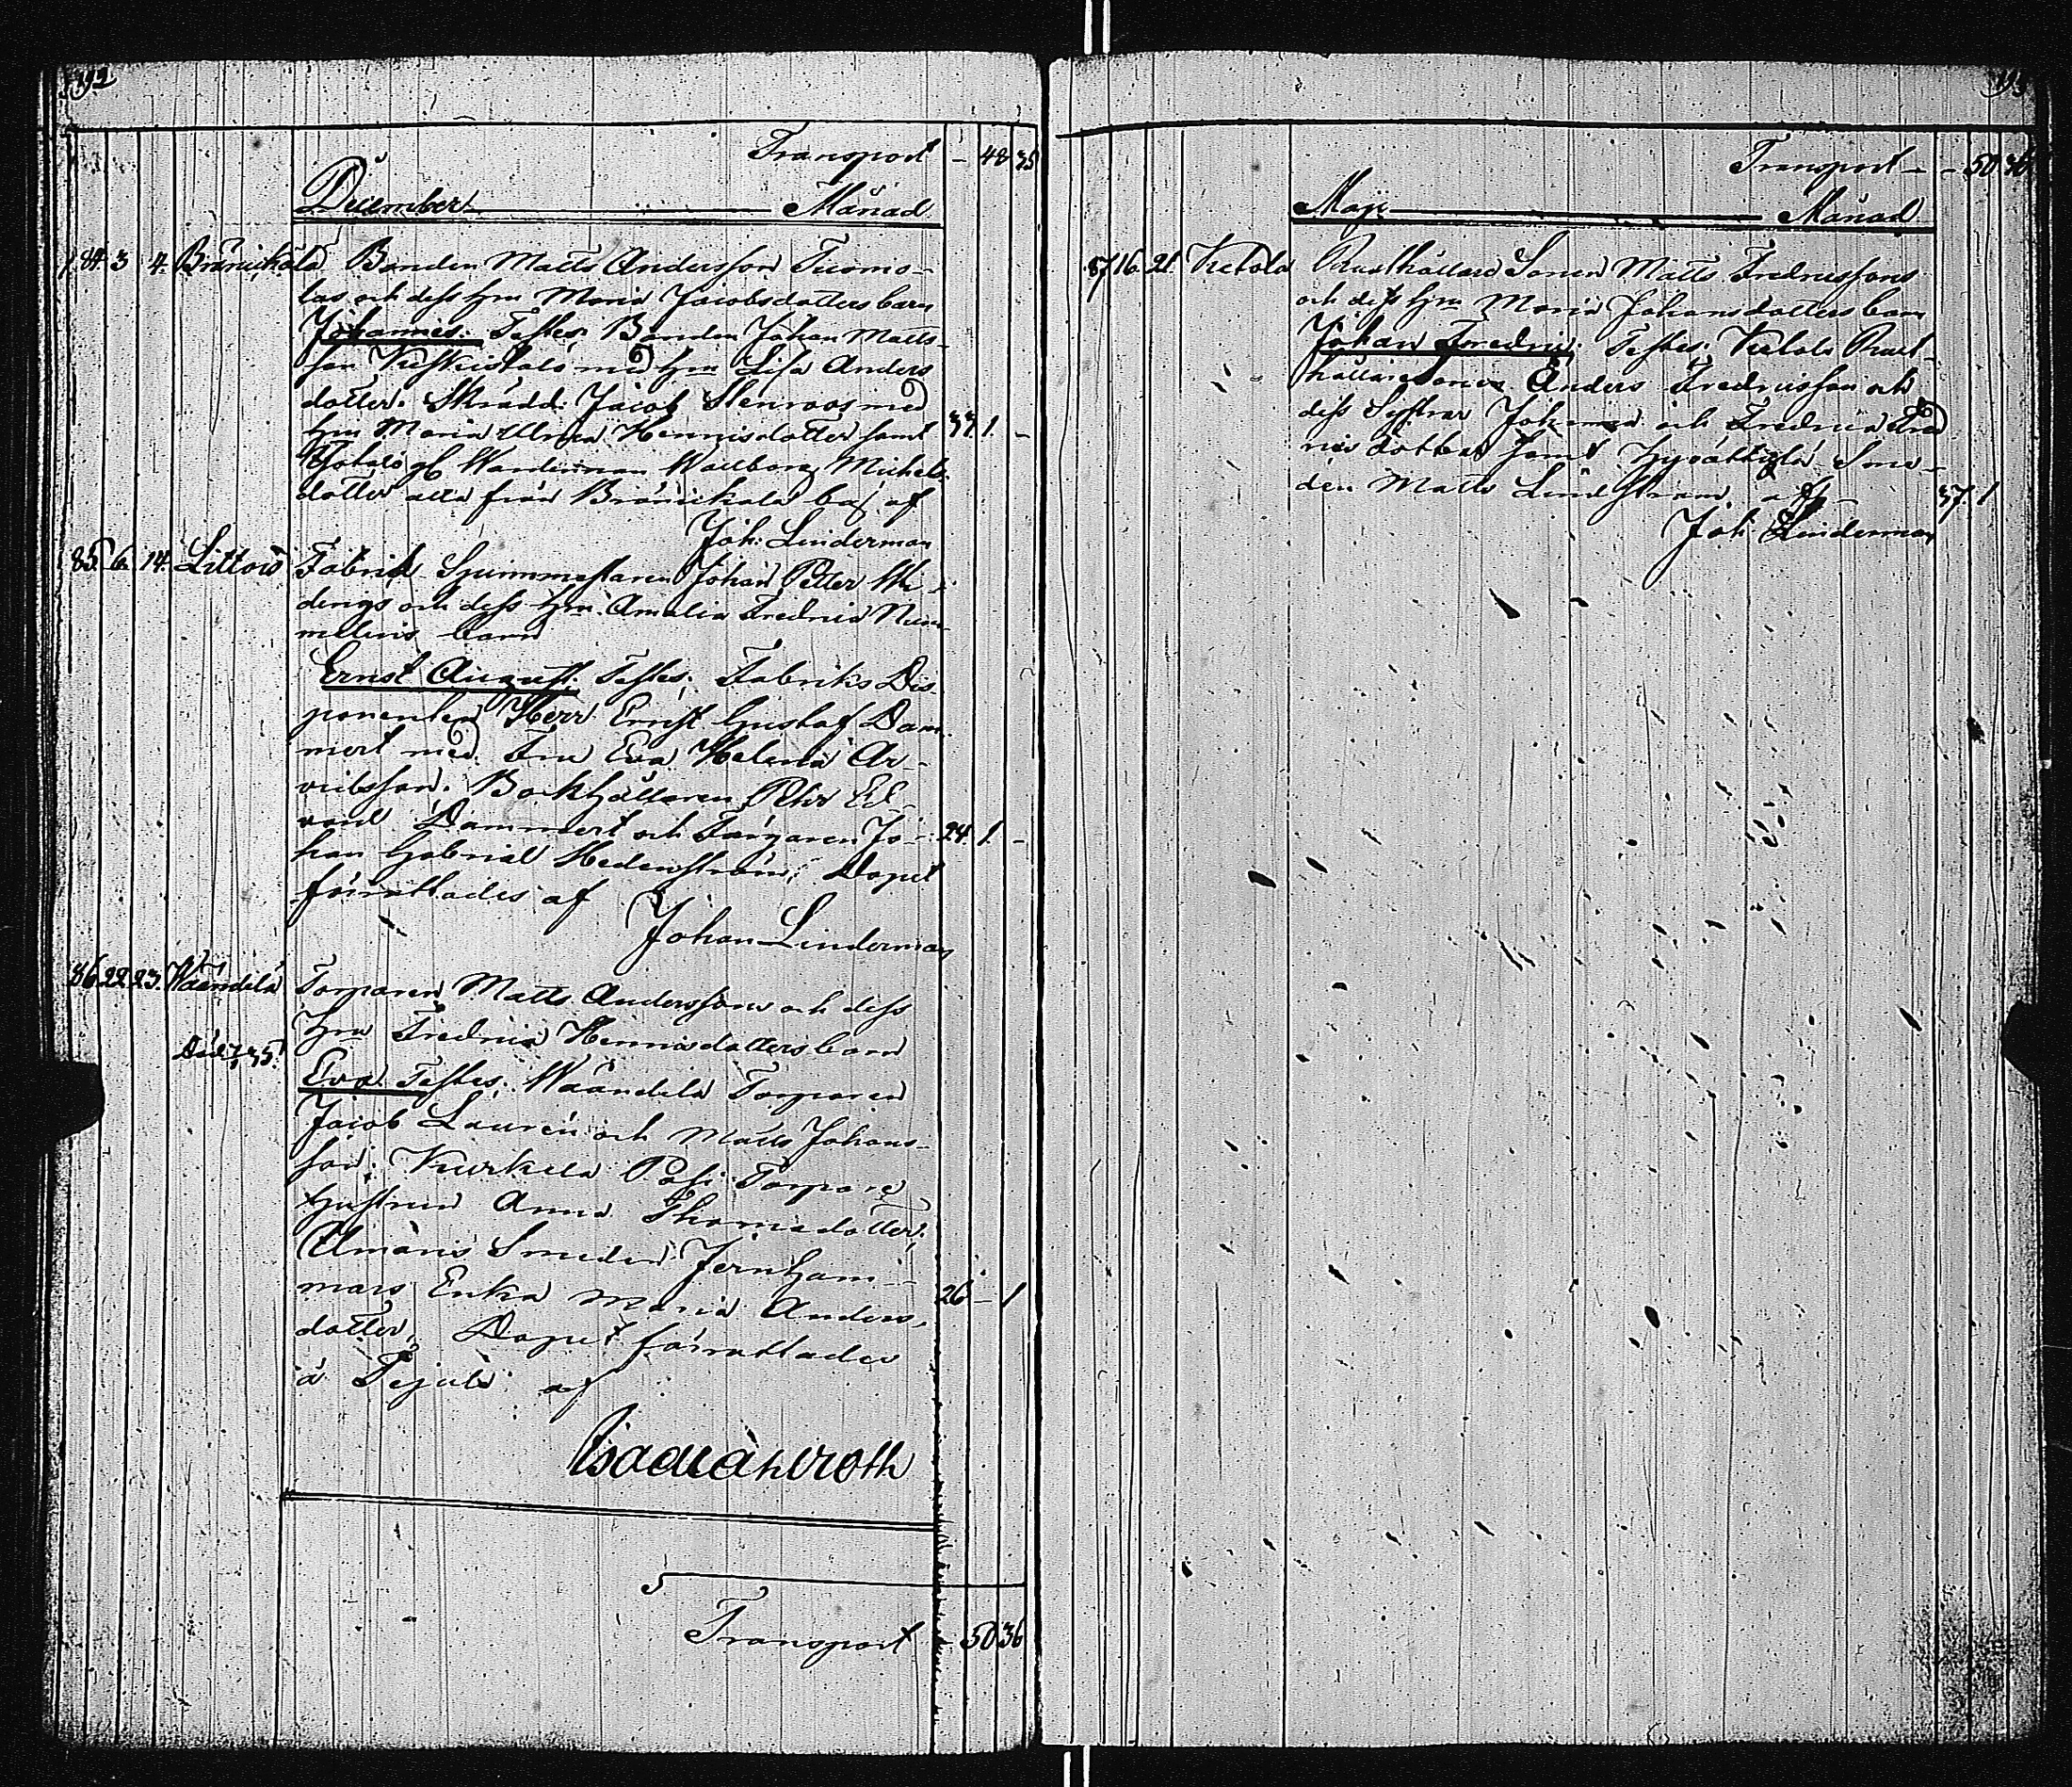 192
Transport - 48 35
December Månad
84. 3 4. Bränickala Bonden Matts Andersson Tuomo-
las och dess hru Maria Jacobsdotters barn
Johannes. Testes: Bonden Johan Matts-
son Keskistalo med hru Lisa Anders
dotter. Skrädd. Jacob Stenroos med
hru Maria Ulrica Henricsdotter samt 37. 1. -
Wallborg Michels-
dotter alla från Bränickala bas af
Joh: Linderman
85. 6. 14. Littois Fabrik Spinnmästaren Johan Petter
och dess hru Amalia Fredrica Num-
melins barn
Ernst August. Testes: Fabriks Dis
ponenten Herr Ernst Gustaf Dam-
mert med Fru Eva Helena Ar-
vidsson. Bokhållaren Pehr Ed-
vard Dammert och Färgaren Jo- 24. 1. -
han Gabriel Hedenström; Dopet
förrättades af
Johan Linderman
86. 22. 23. Wäändelä Torparen Matts Anderssons och dess
hru Fredrica Henricsdotters barn
Eva. Testes: Wäändelä Torparen
Jacob Laurén och Matts Johans-
son; Kurkela Torpare
hustrun Anna Thomasdotter;
Smeden Jernham-
mars Enka Maria Anders- 26 - 1
dotter, Dopet förrättades
å af
Transport - 50 36
193
Transport - - 50 36
Maji Månad
87 16. 21. Ketola Rusthållare Sonen Matts Fredricssons
och dess hru Maria Johansdotters barn
Johan Fredric; Testes: Ketola Rust-
hållaresonen Anders Fredricsson och
dess Systrar Johanna och Fredrica Fred
rics döttrar samt Sme-
den Matts Lindström af - 37 1
Joh: Linderman